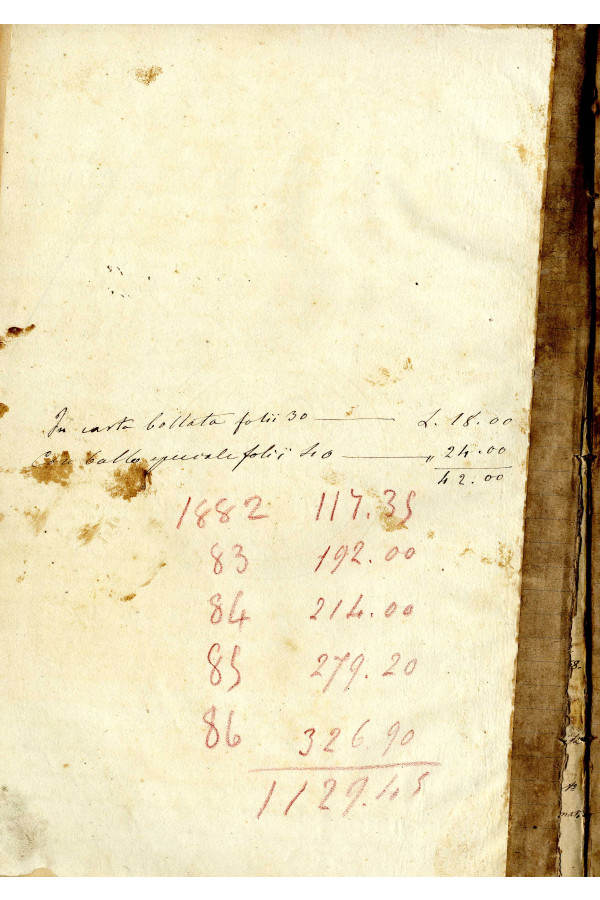 In carta bollata folii 30 — L. 18.00
Con bollo speciale folii 40 — " 24.00
42.00
1882 117.35
83 192.00
84 214.00
85 279.20
86 326.90
1129.45